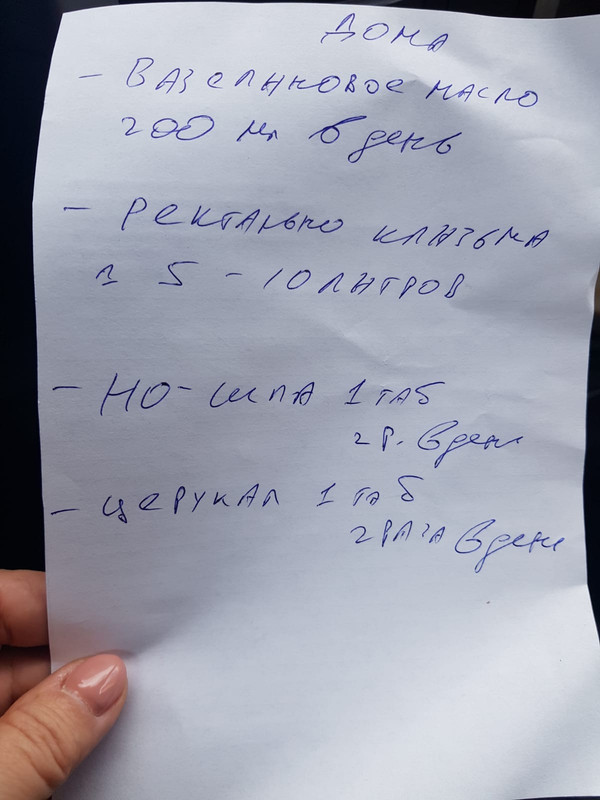 ДОМА
- ВАЗЕЛИНОВОЕ МАСЛО
200 мл в день
- РЕКТАЛЬНО КЛИЗЬМА
5 - 10 ЛИТРОВ
- НО-ШПА 1 ТАБ
2 Р. в день
- ЦЕРУКАЛ 1 таб
2 РАЗА в день